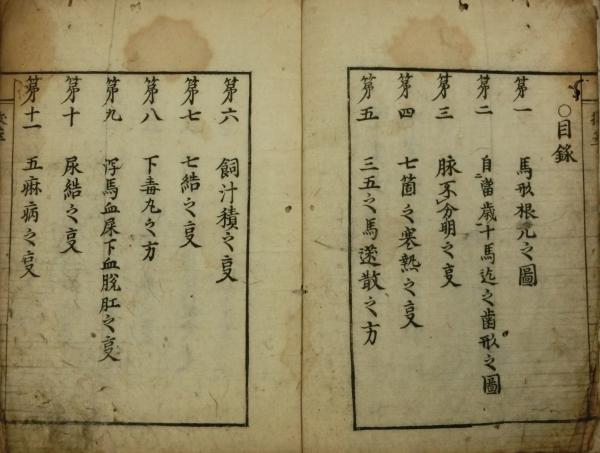 ○目録
第一 馬形根元之圖
第二 自當歳十馬迄之歯形之圖
第三 脉不分明之叓
第四 七箇之寒熱之叓
第五 三五之馬遂散之方
第六 飼汁積之叓
第七 七結之叓
第八 下毒丸之方
第九 瀉馬血屎下血脱肛之叓
第十 尿結之叓
第十一 五痳病之叓